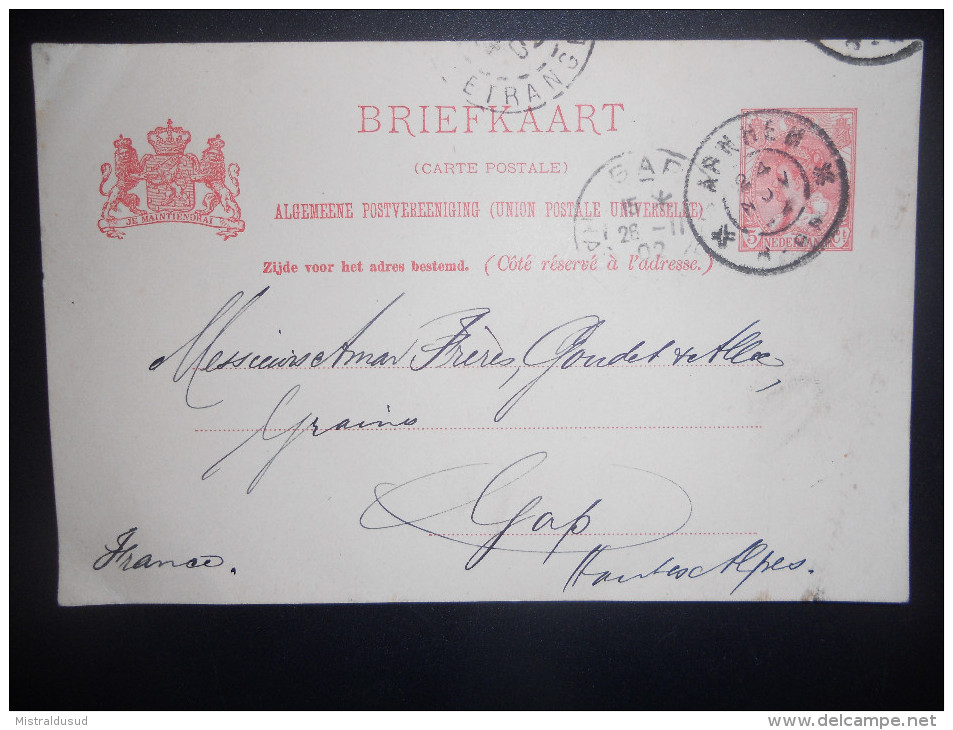 ETRANG
BRIEFKAART
(CARTE POSTALE)
ALGEMEENE POSTVEREENIGING (UNION POSTALE UNIVERSELLE)
Zijde voor het adres bestemd. (Côté réservé à l'adresse.)
JE MAINTIENDRAI
GAP
26 -11
02
ARNHEM
5
NEDER
Messieurs Amar Frères, Goudet & Allec,
Grains
Gap
France.
Hautes Alpes.
Mistraldusud
www.delcampe.net